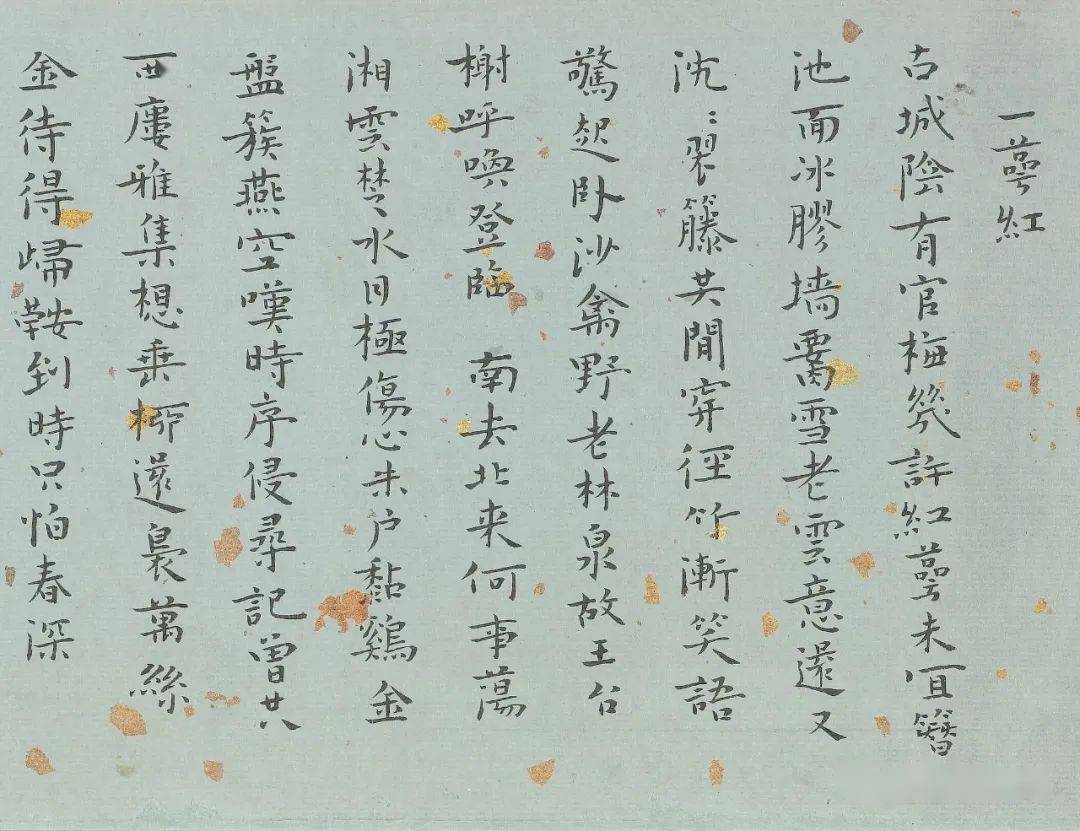 一萼紅
古城陰有官梅幾許紅萼未宜簪
池面冰膠墻腰雪老雲意還又
沈沈翠籐共閒穿徑竹漸笑語
驚起卧沙禽野老林泉故王台
榭呼喚登臨 南去北来何事蕩
湘雲楚水目極傷心朱户黏鷄金
盤簇燕空嘆時序侵尋記曾共
西廔雅集想垂柳還裊萬絲
金待得歸鞍到時只怕春深